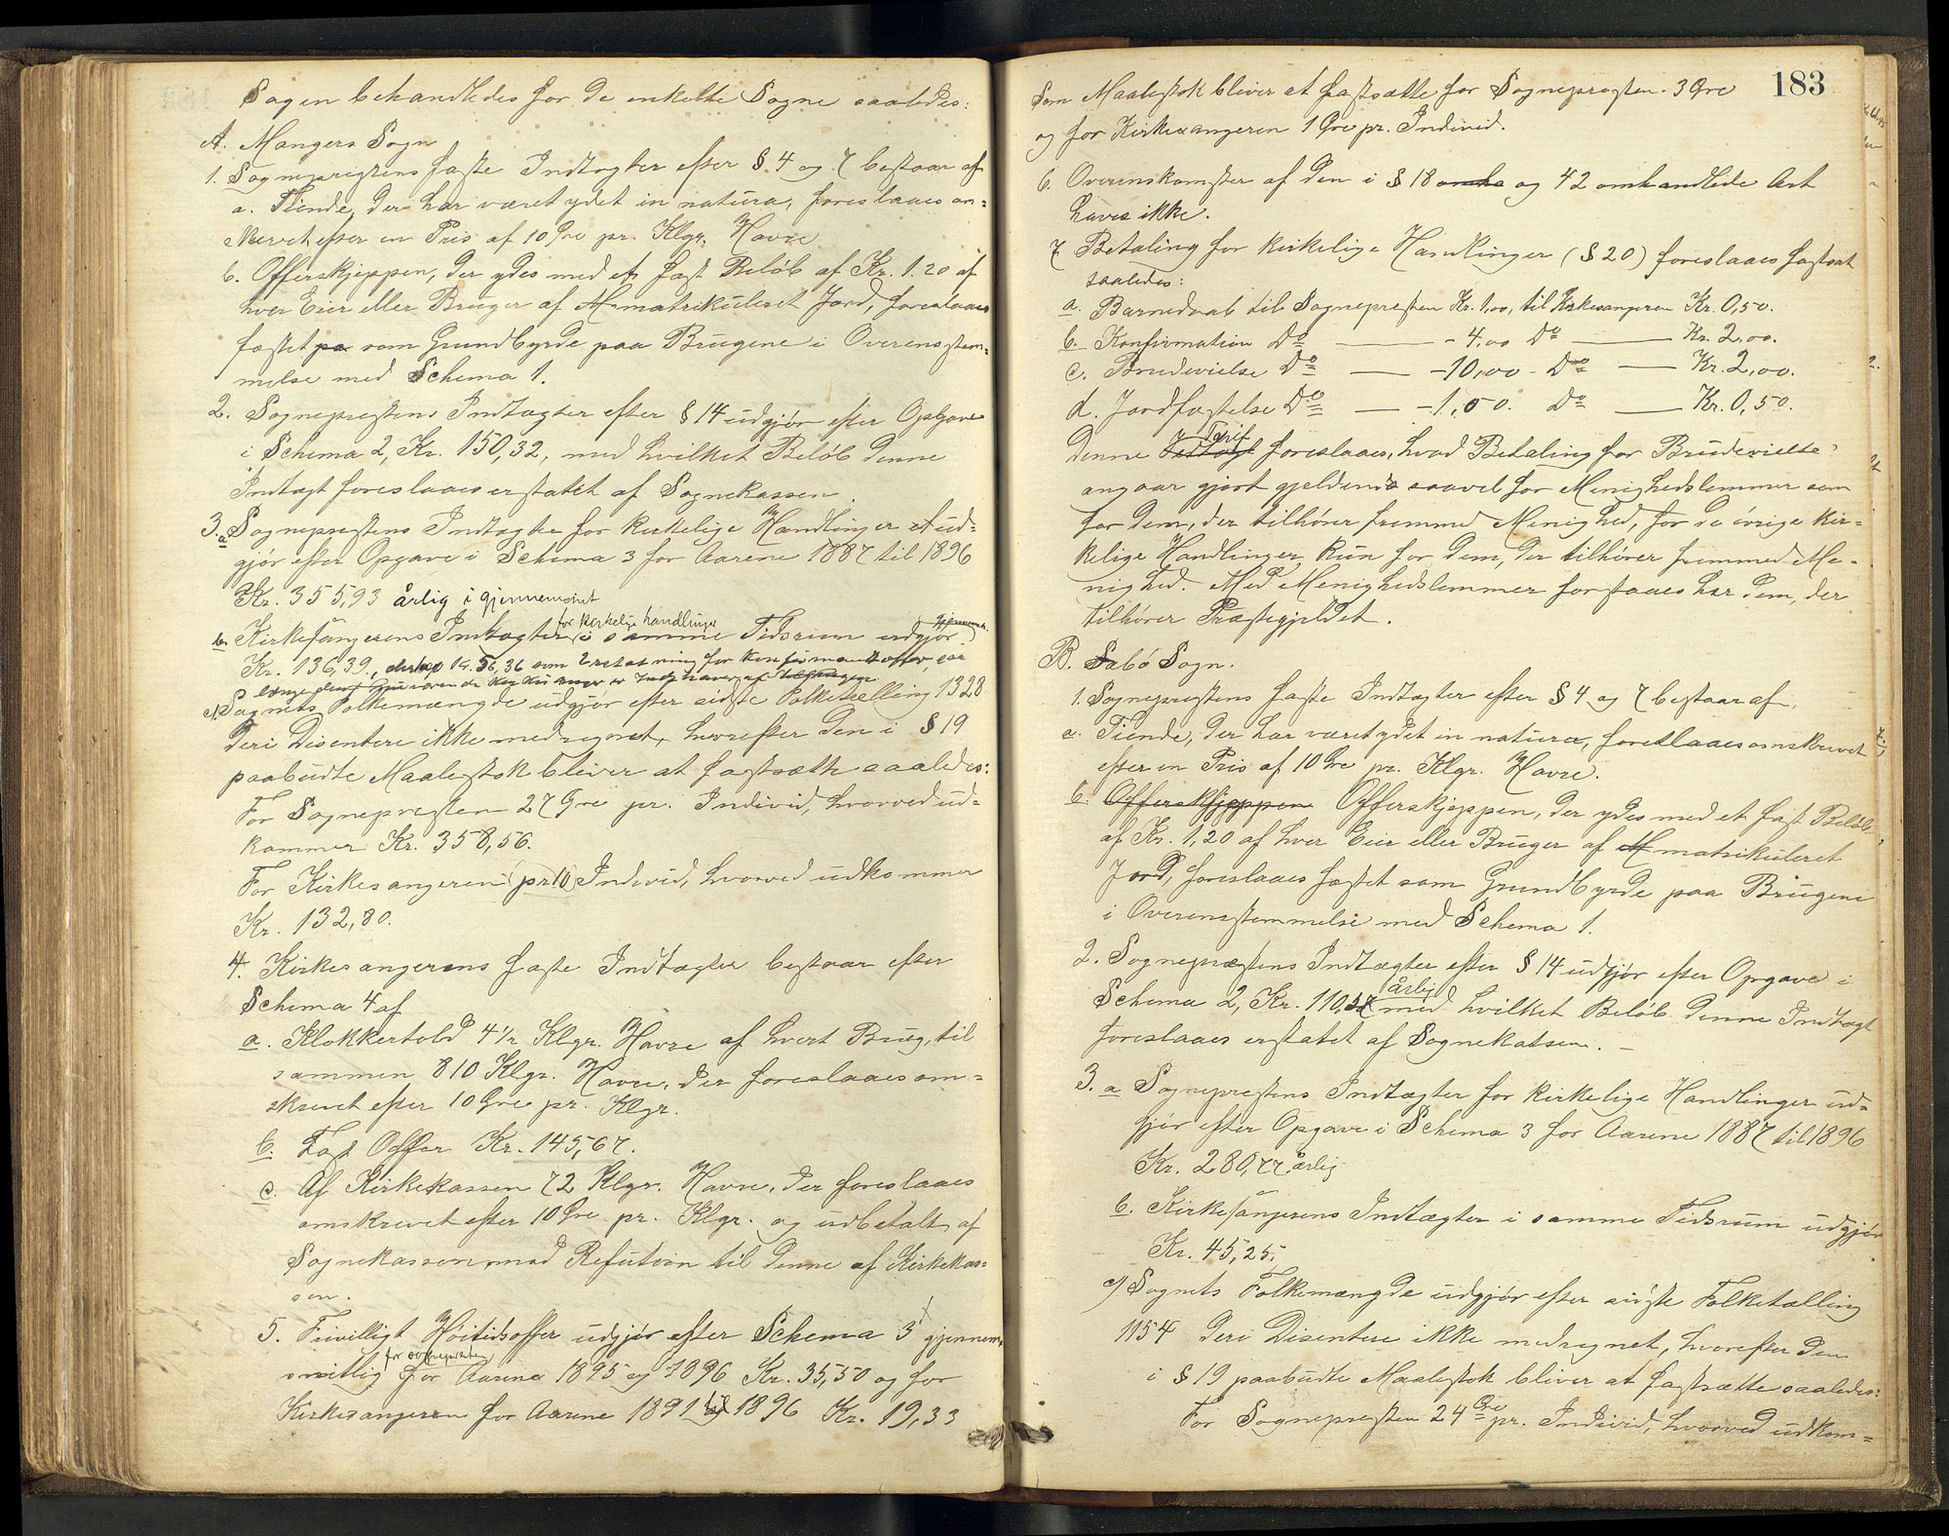 Sagen behandledes for de enkelte Sogne saaledes:
A. Mangers Sogn
1. Sognepræstens faste Indtægter efter § 4 og 7 bestaar af
a. Tiende, der har været ydet in natura, foreslaaes om-
skrevet efter en Pris af 10 Øre pr. Klgr. Havre
b. Offerskjeppen, der ydes med et fast Beløb af Kr. 1.20 af
hver Eier eller Bruger af matrikuleret Jord, foreslaaes
fæstet paa som Grundbyrde paa Brugene i Overensstem-
melse med Schema 1.
2. Sognepræstens Indtægter efter § 14 udgjør efter Opgave
i Schema 2, Kr. 150,32, med hvilket Beløb denne
Indtægt foreslaaes erstatet af Sognekassen.
3. a Sognepræstens Indtægter for kirkelige Handlinger ud-
gjør efter Opgave i Schema 3 for Aarene 1887 til 1896
Kr. 355,93 årlig i gjennemsnit
for kirkelige handlinger
b. Kirkesangerens Indtægter i samme Tidsrum udgjør gjennemsn.
Kr. 136,39, 56,36 som Erstatning for
c. Sognets Folkemængde udgjør efter sidste Folketælling 1328
deri Disentere ikke medregnet, hvorefter den i § 19
paabudte Maalestok bliver at fastsætte saaledes:
For Sognepresten 27 Øre pr. Individ, hvorved ud-
kommer Kr. 358,56.
For Kirkesangeren (pr 10) Individ, hvorved udkommer
Kr. 132,80.
4. Kirkesangerens faste Indtægter bestaar efter
Schema 4 af
a. Klokkertold 4 1/2 Klgr. Havre af hvert Brug, til
sammen 810 Klgr. Havre, der foreslaaes om-
skrevet efter 10 Øre pr. Klgr.
b. Fast Offer Kr. 145,67.
c. Af Kirkekassen 72 Klgr. Havre, der foreslaaes
omskrevet efter 10 Øre pr. Klgr. og udbetalt af
Sognekassen med Refution til denne af Kirkekas-
sen.
5. Frivilligt Høitidsoffer udgjør efter Schema 3 gjennem-
snitlig for sognepresten for Aarene 1895 og 1896 Kr. 35,50 og for
Kirkesangeren for Aarene 1891 til 1896 Kr. 19,33
183
Som Maalestok bliver at fastsætte for Sognepresten 3 Øre
og for Kirkesangeren 1 Øre pr. Individ.
6. Overenskomster af den i § 18 og 42 omhandlede Art
haves ikke.
7 Betaling for kirkelige Handlinger (§ 20) foreslaaes fastsat
saaledes:
a. Barnedaab til Sognepresten Kr. 1,00, til Kirkesangeren Kr. 0,50.
b. Konfirmation Do — - 4,00 Do — Kr. 2,00.
c. Brudevielse Do — - 10,00 - Do — Kr. 2,00.
d. Jordfæstelse Do — - 1,00. Do — Kr. 0,50.
Denne Tarif foreslaaes, hvad Betaling for Brudevielse
angaar gjort gjeldende saavel for Menighedslemmer som
for dem, der tilhører fremmed Menighed, for de øvrige Kir-
kelige Handlinger kun for dem, der tilhører fremmed Me-
nighed. Med Menighedslemmer forstaaes her dem, der
tilhører Præstegjeldet.
B. Sæbø Sogn.
1. Sognepræstens faste Indtægter efter § 4 og 7 bestaar af
a. Tiende, der har været ydet in natura, foreslaaes omskrevet
efter en Pris af 10 Øre pr. Klgr. Havre.
b. Offerskjeppen Offerskjeppen, der ydes med et fast Beløb
af Kr. 1,20 af hver Eier eller Bruger af matrikuleret
Jord, foreslaaes fæstet som Grundbyrde paa Brugene
i Overensstemmelse med Schema 1.
2. Sognepræstens Indtægter efter § 14 udgjør efter Opgave i
Schema 2, Kr. årlig med hvilket Beløb denne Indtægt
foreslaaes erstatet af Sognekassen. —
3. a Sognepræstens Indtægter for kirkelige Handlinger ud-
gjør efter Opgave i Schema 3 for Aarene 1887 til 1896
Kr. 280,77 årlig
b. Kirkesangerens Indtægter i samme Tidsrum udgjør
Kr. 45,25.
c) Sognets Folkemængde udgjør efter sidste Folketælling
1154 deri Disentere ikke medregnet, hvorefter den
i § 19 paabudte Maalestok bliver at fastsætte saaledes:
For Sognepresten 24 Øre pr. Individ, hvorved udkom-